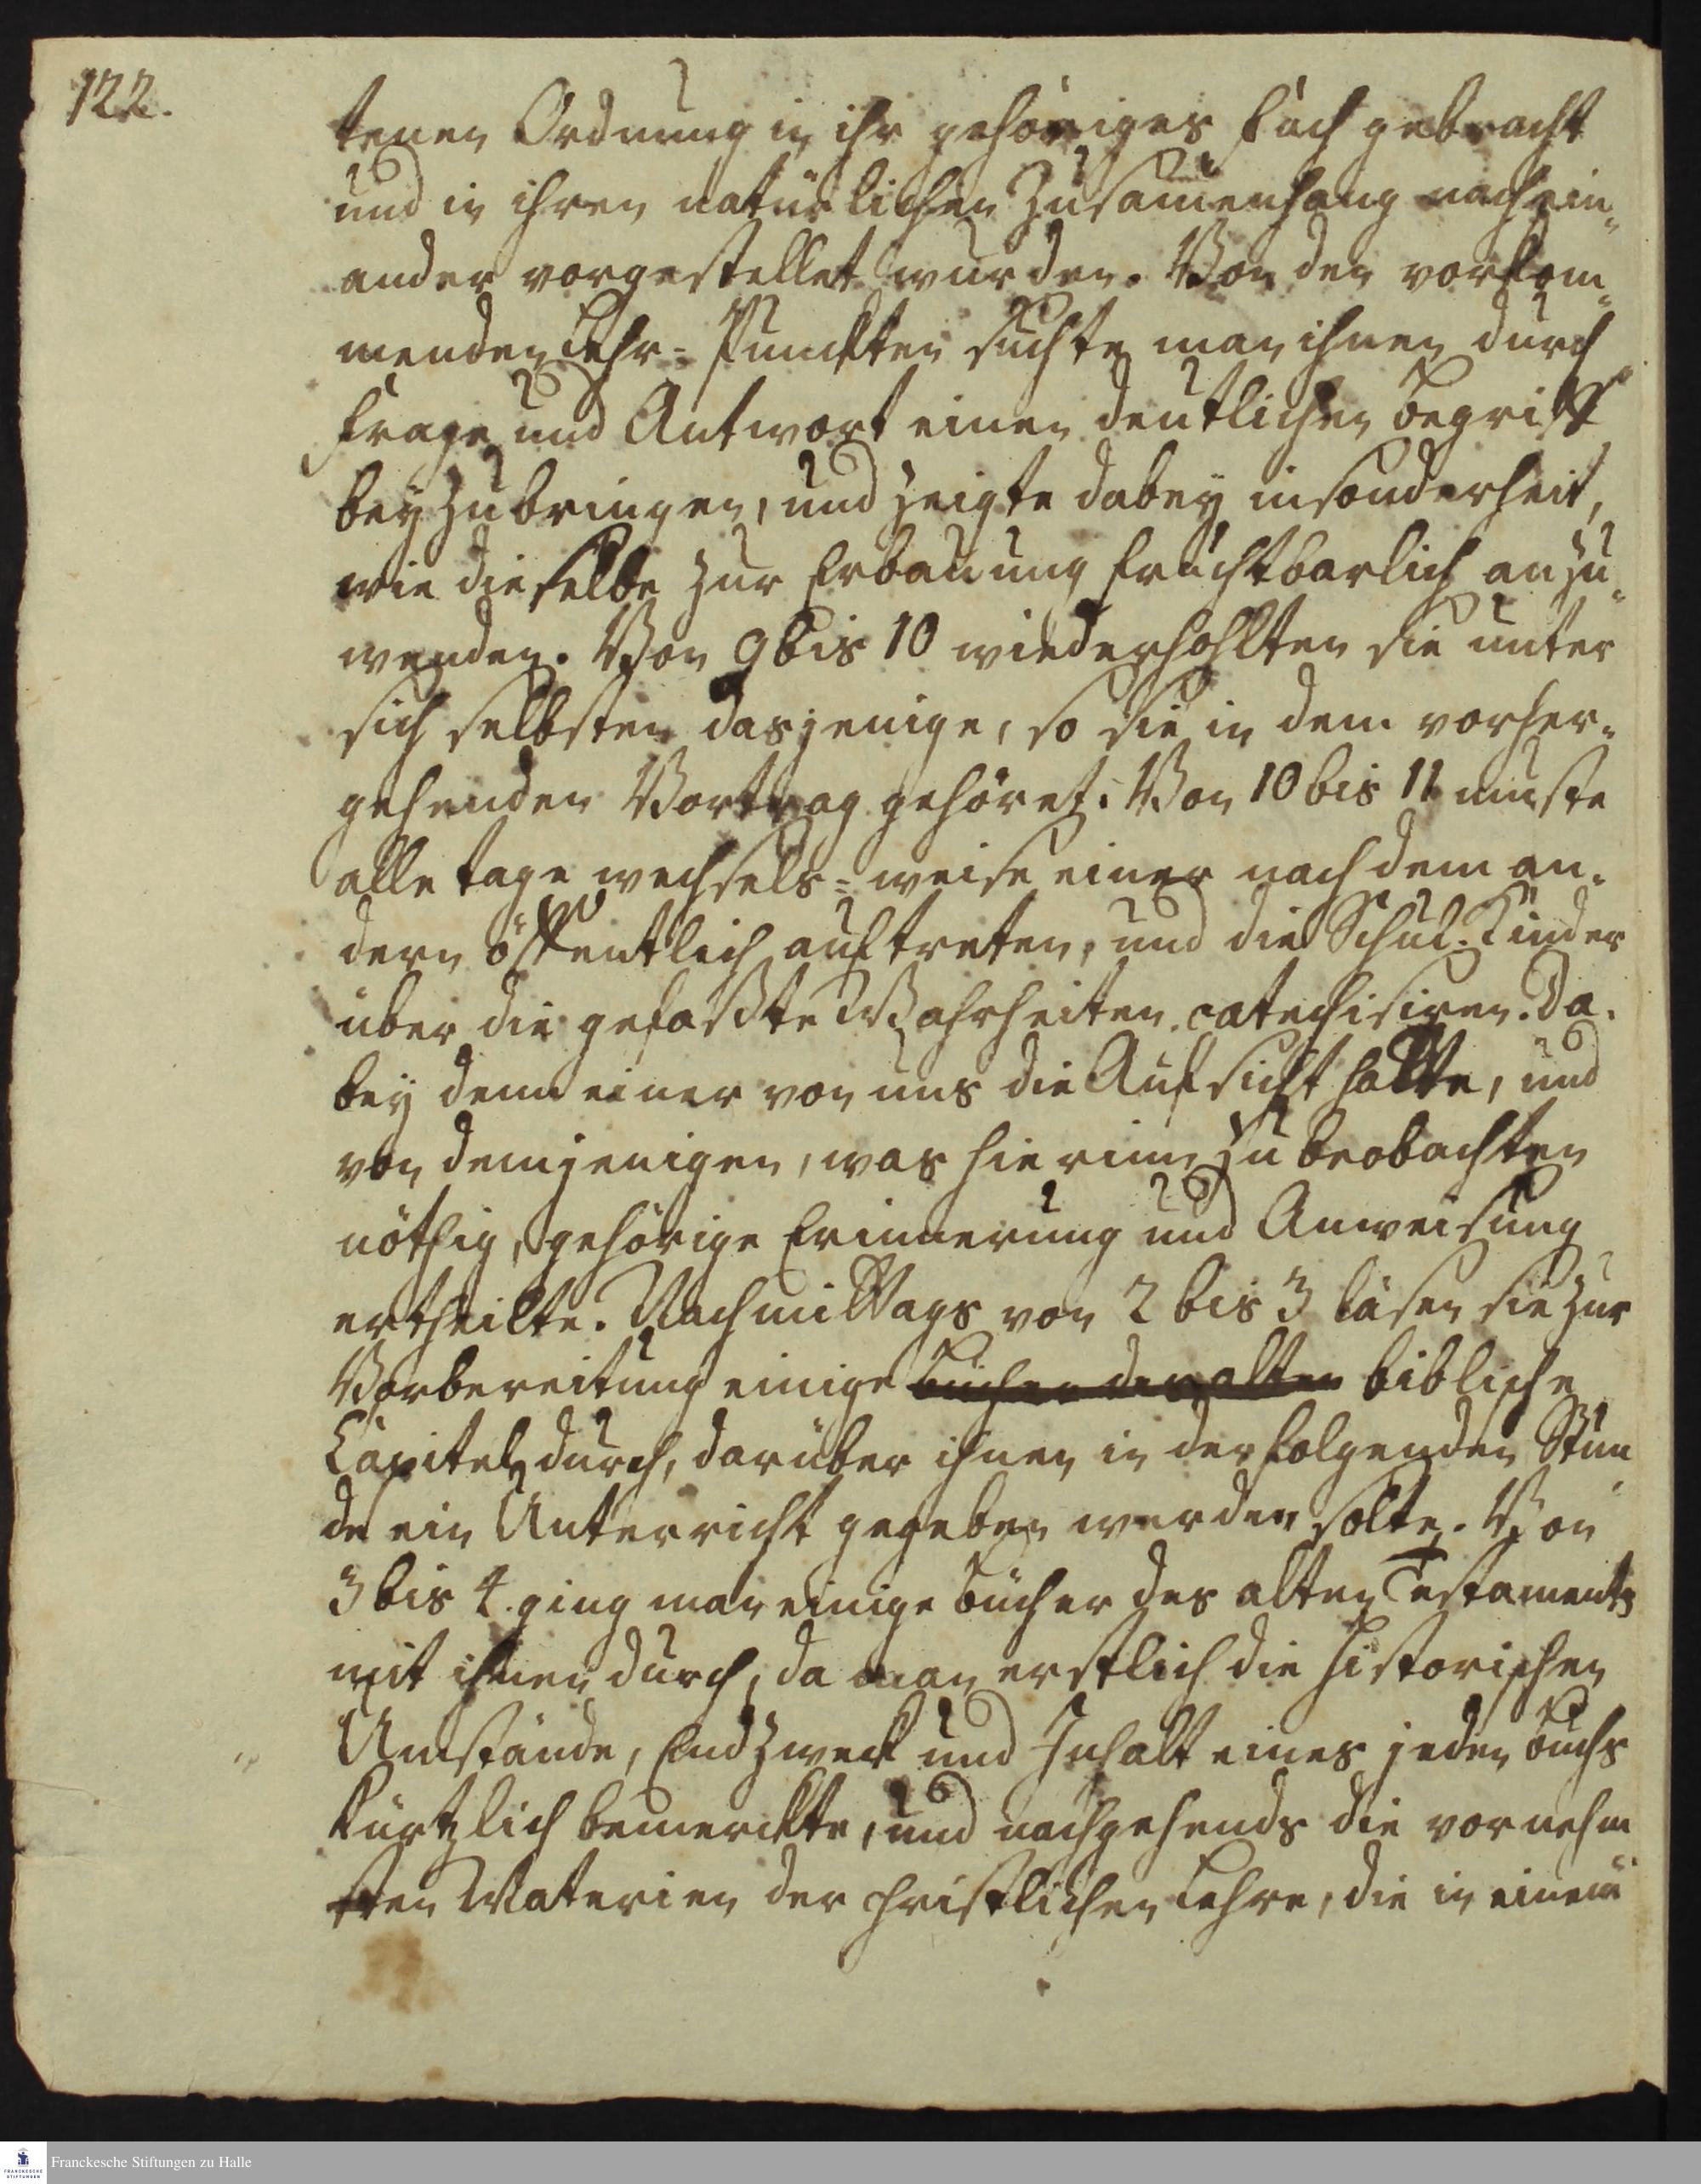 122.
tenen Ordnung in ihr gehöriges Fach gebracht
und in ihren natürlichen Zusam̄enhang nach ein-
ander vorgestellet wurden. Von den vorkom-
menden Lehr-Punckten suchte man ihnen durch
Frage und Antwort einen deutlichen Begriff
beyzubringen, und zeigte dabey insonderheit,
wie dieselbe zur Erbauung fruchtbarlich anzu-
wenden. Von 9 bis 10 wiederhohlten sie unter
sich selbsten dasjenige, so sie in dem vorher-
gehenden Vortrag gehöret. Von 10 bis 11 muste
alle tage wechsels-weise einer nach dem an-
dern öffentlich auftreten, und die Schul-Kinder
über die gefaßte Wahrheiten catechisiren. Da-
bey denn einer von uns die Aufsicht hatte, und
von demjenigen, was hierinn zu beobachten
nöthig, gehörige Erinnerung und Anweisung
ertheilte. Nachmittags von 2 bis 3 lasen sie zur
Vorbereitung einige Bücher des alten biblische
Capitel durch, darüber ihnen in der folgenden Stun
de ein Unterricht gegeben werden solte. Von
3 bis 4. ging man einige Bücher des alten Testaments
mit ihnen durch, da man erstlich die historischen
Umstände, Endzweck und Inhalt eines jeden Buchs
kürtzlich bemerckte, und nachgehends die vornehm
sten Materien der christlichen Lehre, die in einem
Franckesche Stiftungen zu Halle